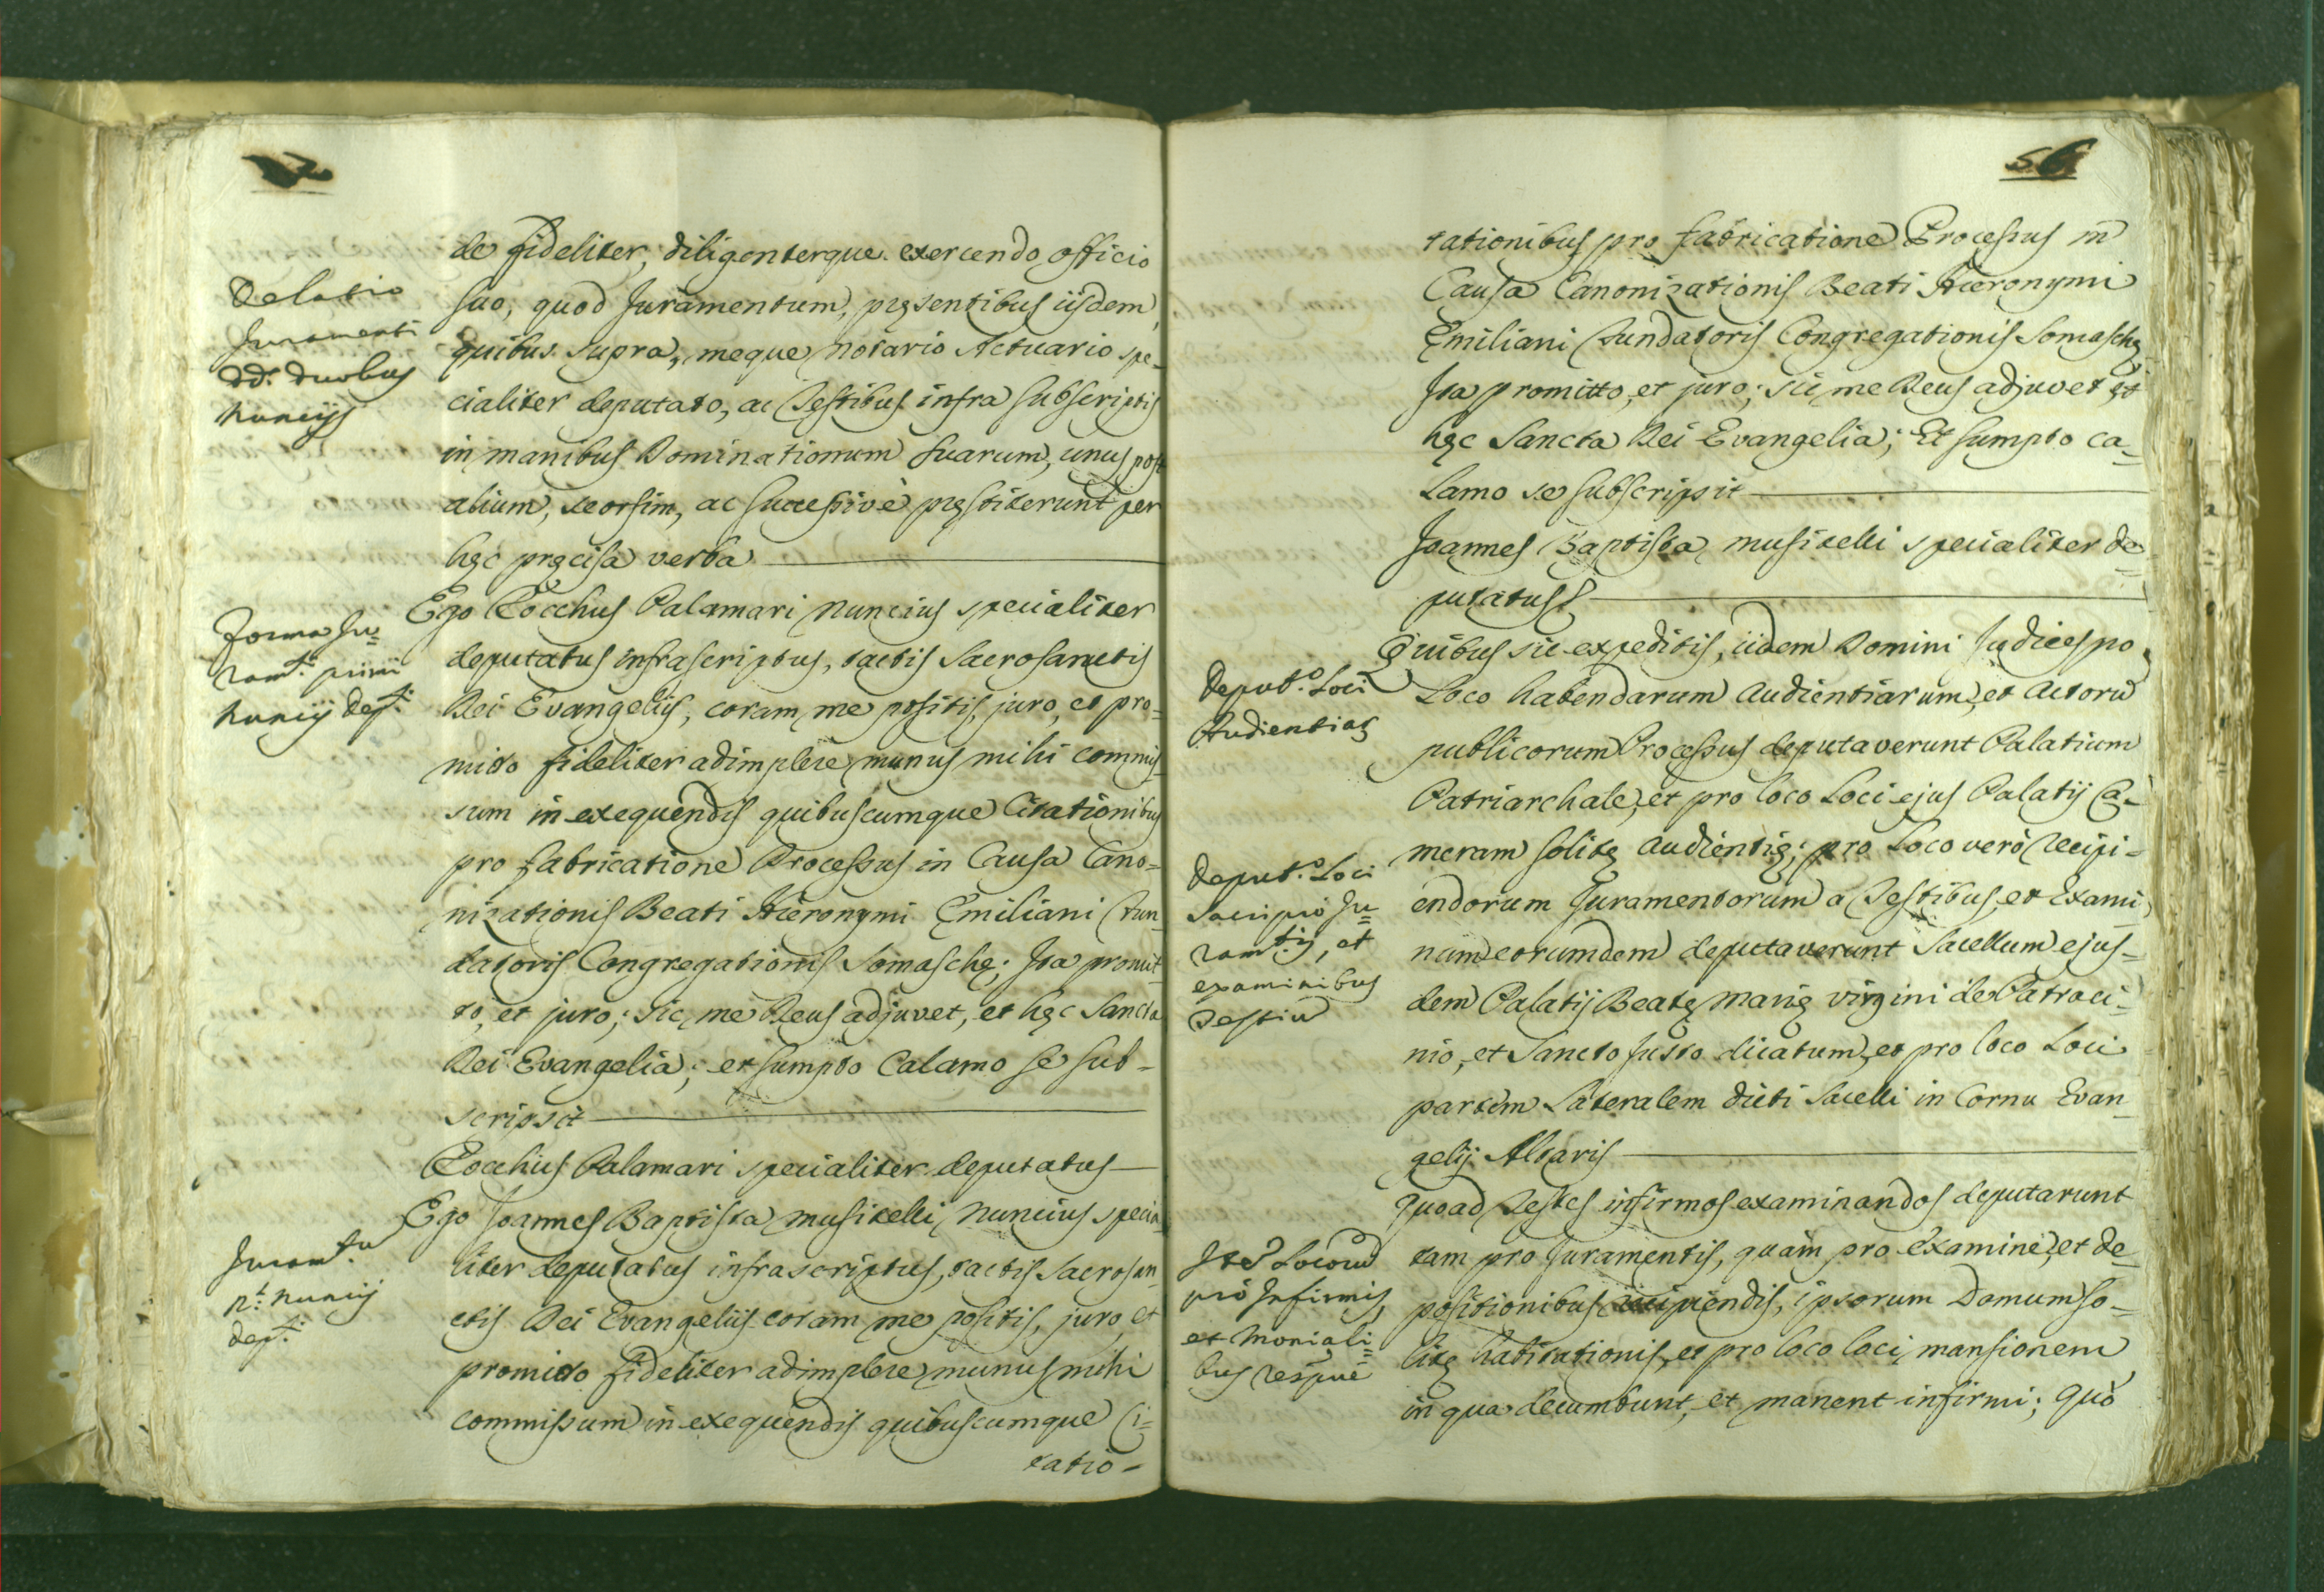 de fideliter, diligenterque exercendo officio
Delatio
Juramenti
dd. duobus
Nuncijs
suo, quod Juramentum, pręsentibus ijsdem,
quibus supra, meque Notario Actuario spe-
cialiter deputato, ac Testibus infra subscriptis
in manibus Dominationum suarum, unus post
alium, seorsim, ac successivè pręstiterunt per
hęc pręcisa verba
Forma Ju=
ram.ti primi
Nuncij dep.ti
Ego Rocchus Palamari Nuncius specialiter
deputatus infrascriptus, tactis Sacrosanctis
Dei Evangelijs, coram me positis, juro, et pro=
mitto fideliter adimplere munus mihi commis=
sum in exequendis quibuscumque Citationibus
pro fabricatione Processus in Causa Cano=
nizationis Beati Hieronymi Emiliani Fun-
datoris Congregationis Somaschę; Ita promit-
to, et juro; sic me Deus adjuvet, et hęc Sancta
Dei Evangelia; et sumpto Calamo se sub=
scripsit
Rocchus Palamari specialiter deputatus
Juram.tu
n.ti Nuncij
dep.ti
Ego Joannes Baptista Musitelli Nuncius specia
liter deputatus infrascriptus, tactis Sacrosan=
ctis Dei Evangelijs coram me positis, juro, et
promitto fideliter adimplere munus mihi
commissum in exequendis quibuscumque Ci=
tatio=
56
tationibus pro fabricatione Processus in
Causa Canonizationis Beati Hieronymi
Emiliani Fundatoris Congregationis Somaschę
Ita promitto, et juro; sic me Deus adjuvet, et
hęc Sancta Dei Evangelia; Et sumpto ca=
lamo se subscripsit
Joannes Baptista Musitelli specialiter de=
putatus
Deput.o Loci
Audientiaę
Quibus sic expeditis, iidem Domini Judices pro
Loco habendarum Audientiarum, et Actorū
publicorum Processus deputaverunt Palatium
Patriarchale, et pro loco Loci ejus Palatij Ca-
meram solitę Audientię; pro Loco verò recipi=
Deput.o Loci
Sacri pro Ju=
ram.tis, et
examinibus
Testiū
endorum Juramentorum a Testibus, et Exami
num eorumdem deputaverunt Sacellum ejus=
dem Palatij Beatę Marię Virgini de Patroci=
nio, et Sancto Justo dicatum, et pro loco Loci
partem Lateralem dicti Sacelli in Cornu Evan=
gelij Altaris
Quoad Testes infirmos examinandos deputarunt
Ite Locorū
pro Infirmis,
et Moniali=
bus respuè
tam pro Juramentis, quàm pro Examine, et de=
positionibus recipiendis, ipsorum Domum so=
litę habitationis, et pro loco loci, mansionem
in qua decumbunt, et manent infirmi; Quò